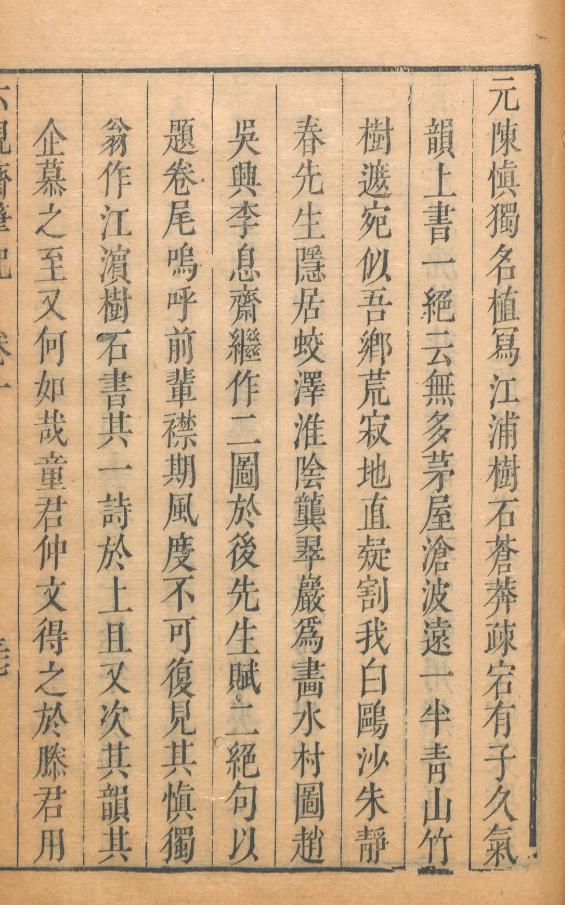 元陳慎獨名植寫江浦樹石蒼莽疎宕有子久氣
韻上書一絕云無多茅屋滄波遠一半靑山竹
樹遮宛似吾鄉荒寂地直疑割我白鷗沙朱靜
春先生隱居蛟澤淮陰龔翠巖爲畵水村圖趙
吳興李息齋繼作二圖於後先生賦二絕句以
題卷尾嗚呼前輩襟期風度不可復見其愼獨
翁作江濵樹石書其一詩於上且又次其韻其
企慕之至又何如哉童君仲文得之於滕君用
六硯齋筆記 卷一